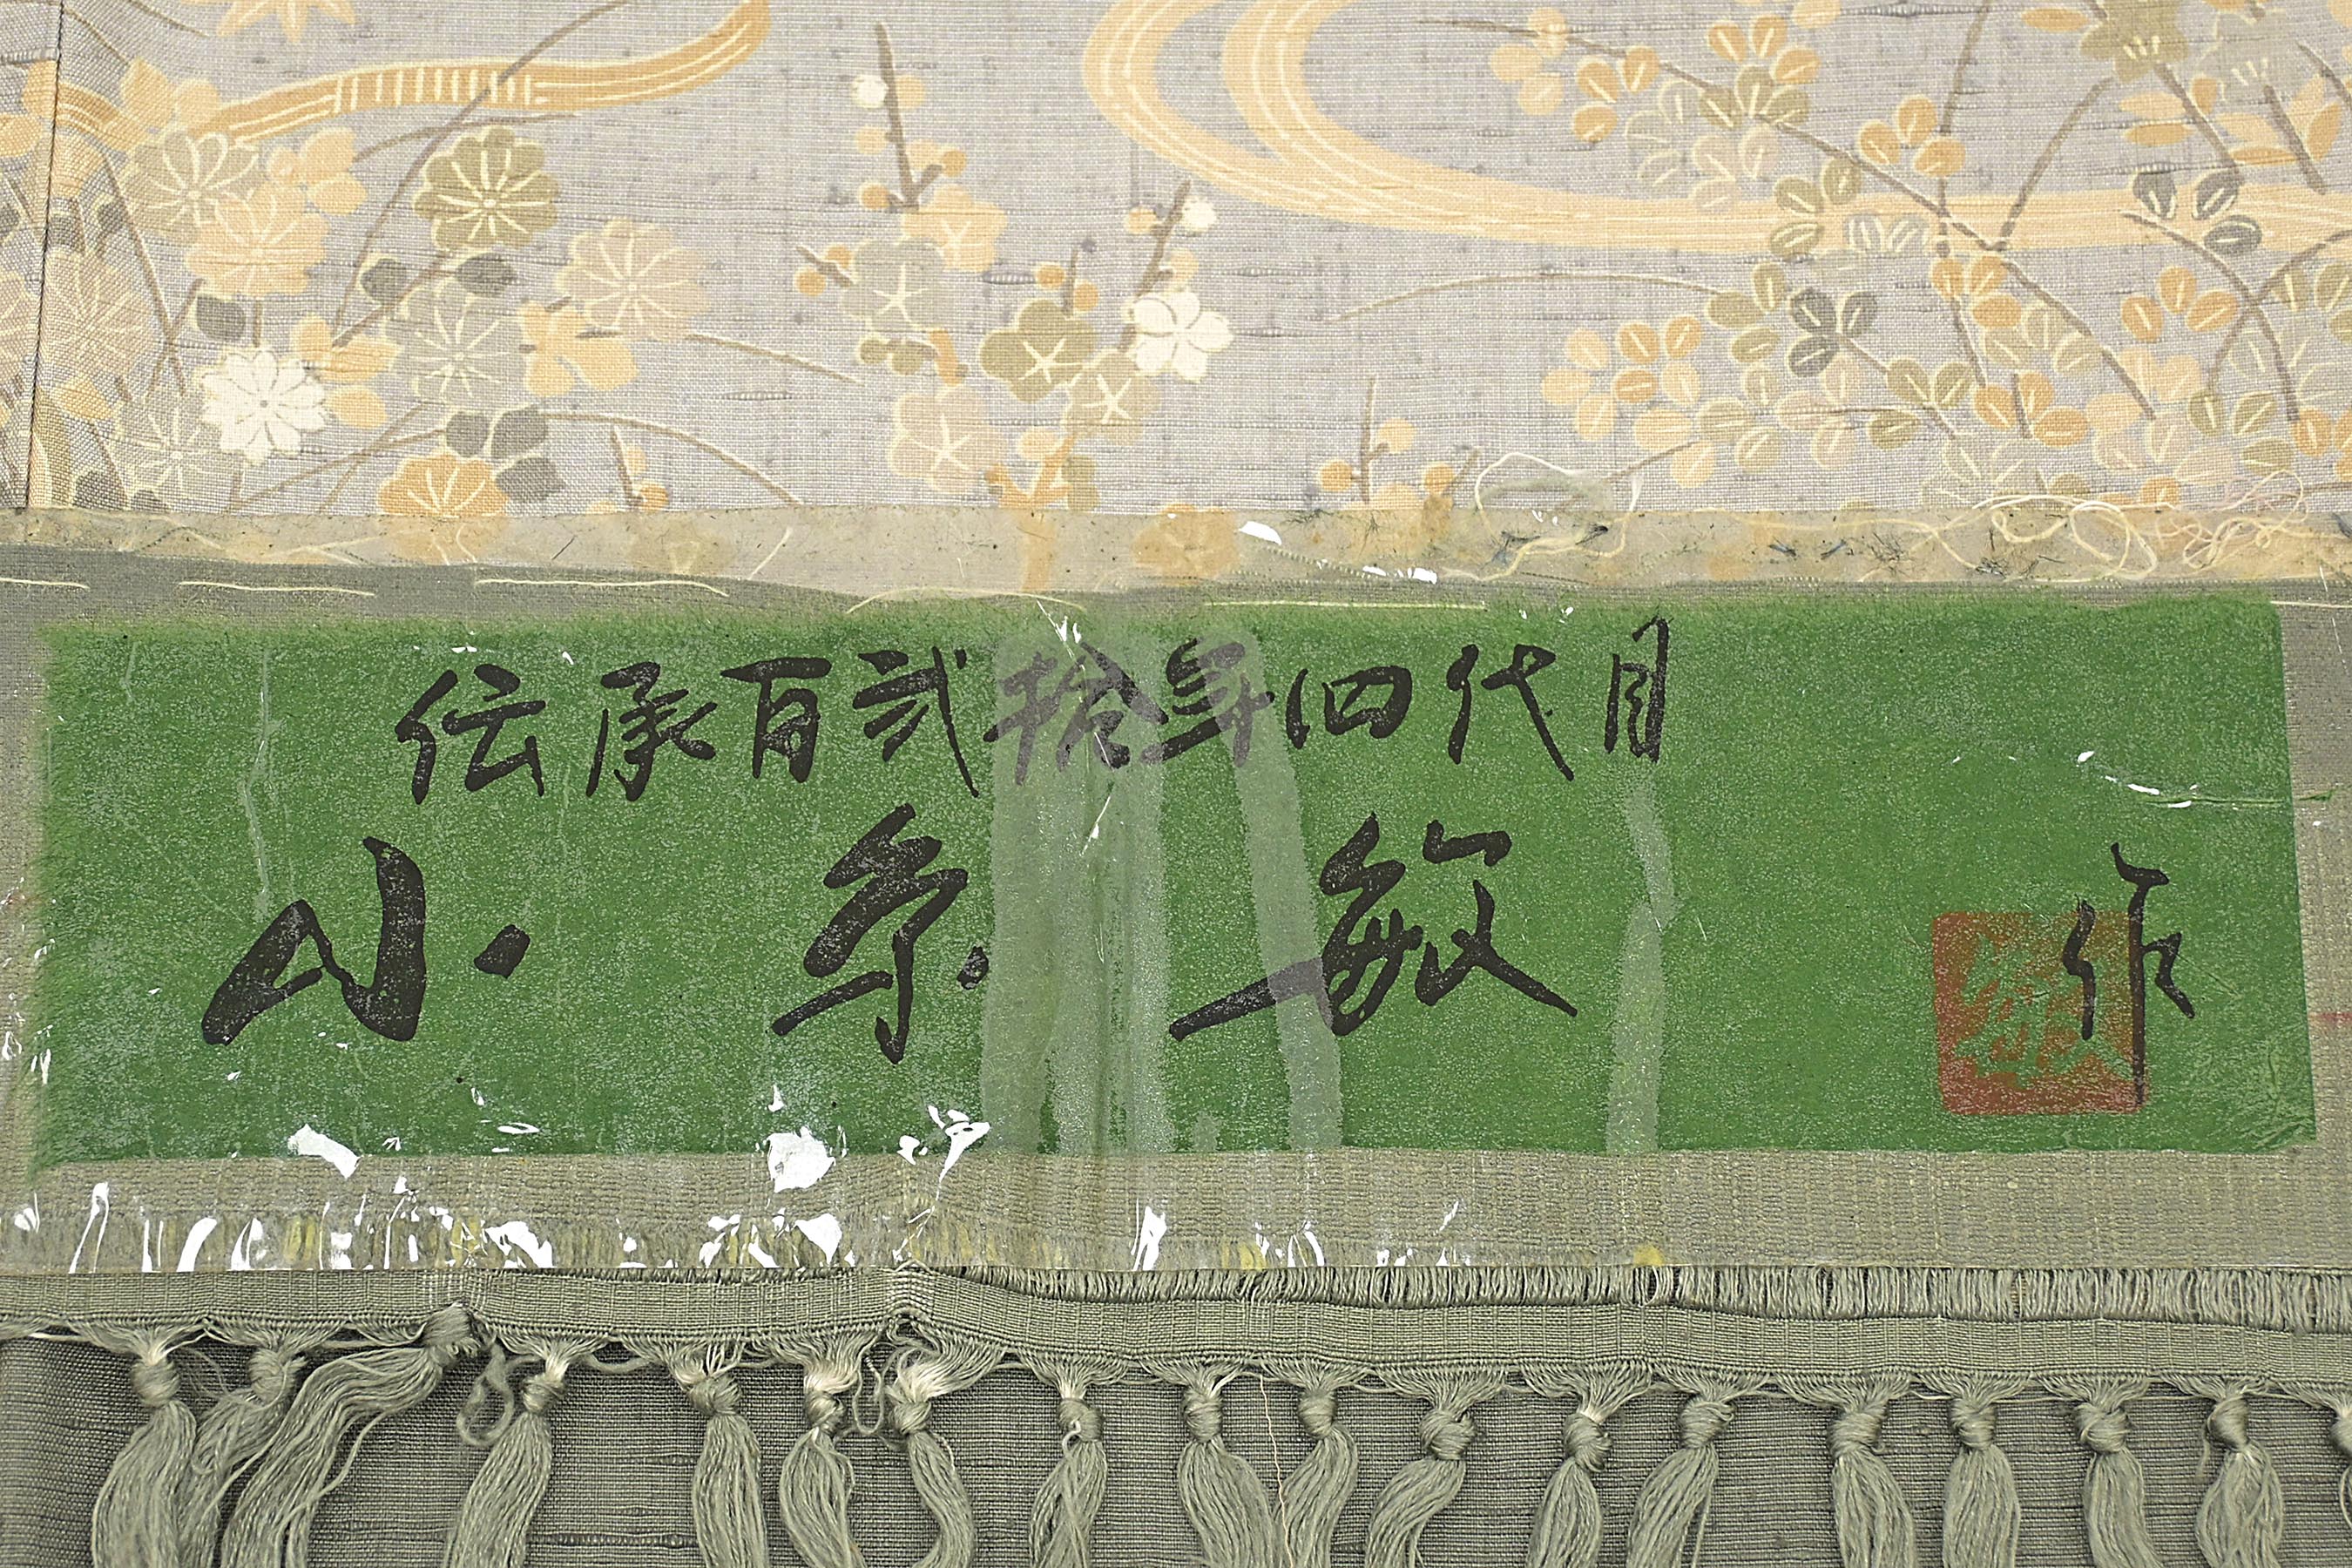 伝承百弐拾年四代目
小糸敏作
敏